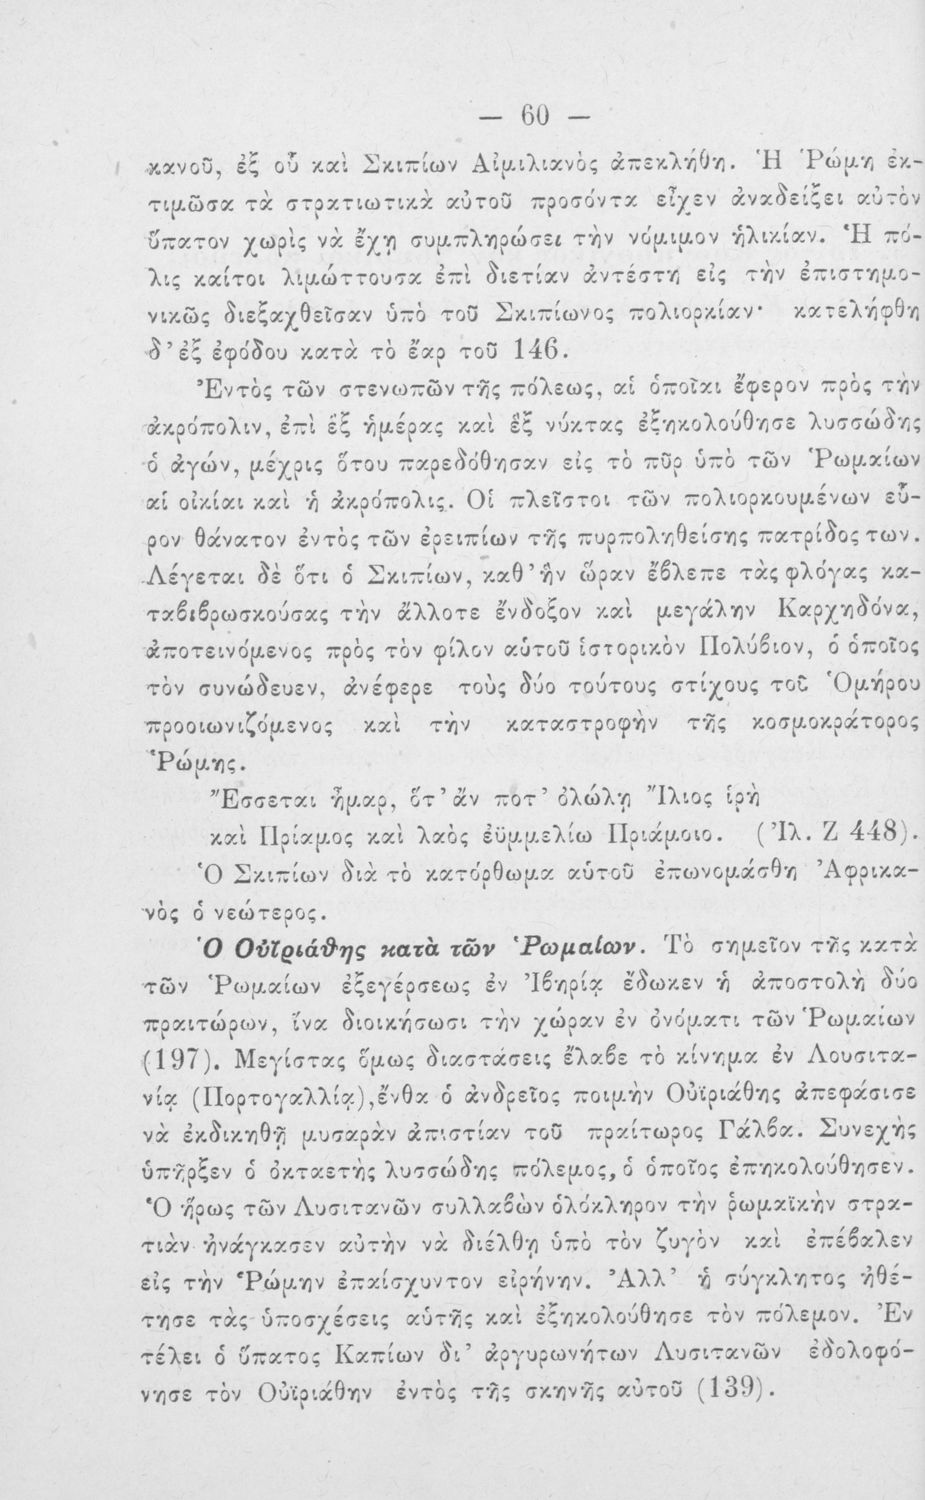 — 60 —
κανοῦ, ἐξ οὗ καὶ Σκιπίων Αἰμιλιανὸς ἀπεκλήθη. Ἡ Ῥώμη ἐκ-
τιμῶσα τὰ στρατιωτικὰ αὐτοῦ προσόντα εἶχεν ἀναδείξει αὐτὸν
ὕπατον χωρὶς νὰ ἔχῃ συμπληρώσει τὴν νόμιμον ἡλικίαν. Ἡ πό-
λις καίτοι λιμώττουσα ἐπὶ διετίαν ἀντέστη εἰς τὴν ἐπιστημο-
νικῶς διεξαχθεῖσαν ὑπὸ τοῦ Σκιπίωνος πολιορκίαν· κατελήφθη
δ’ ἐξ ἐφόδου κατὰ τὸ ἔαρ τοῦ 146.
Ἐντὸς τῶν στενωπῶν τῆς πόλεως, αἱ ὁποῖαι ἔφερον πρὸς τὴν
ἀκρόπολιν, ἐπὶ ἓξ ἡμέρας καὶ ἓξ νύκτας ἐξηκολούθησε λυσσώδης
ὁ ἀγών, μέχρις ὅτου παρεδόθησαν εἰς τὸ πῦρ ὑπὸ τῶν Ῥωμαίων
αἱ οἰκίαι καὶ ἡ ἀκρόπολις. Οἱ πλεῖστοι τῶν πολιορκουμένων εὗ-
ρον θάνατον ἐντὸς τῶν ἐρειπίων τῆς πυρποληθείσης πατρίδος των.
Λέγεται δὲ ὅτι ὁ Σκιπίων, καθ’ ἣν ὥραν ἔβλεπε τὰς φλόγας κα-
ταβιβρωσκούσας τὴν ἄλλοτε ἔνδοξον καὶ μεγάλην Καρχηδόνα,
ἀποτεινόμενος πρὸς τὸν φίλον αὑτοῦ ἱστορικὸν Πολύβιον, ὁ ὁποῖος
τὸν συνώδευεν, ἀνέφερε τοὺς δύο τούτους στίχους τοῦ Ὁμήρου
προοιωνιζόμενος καὶ τὴν καταστροφὴν τῆς κοσμοκράτορος
Ῥώμης.
Ἔσσεται ἦμαρ, ὅτ’ ἄν ποτ’ ὀλώλῃ Ἴλιος ἱρὴ
καὶ Πρίαμος καὶ λαὸς ἐϋμμελίω Πριάμοιο. (Ἰλ. Ζ 448).
Ὁ Σκιπίων διὰ τὸ κατόρθωμα αὑτοῦ ἐπωνομάσθη Ἀφρικα-
νὸς ὁ νεώτερος.
Ὁ Οὐϊριάθης κατὰ τῶν Ῥωμαίων. Τὸ σημεῖον τῆς κατὰ
τῶν Ῥωμαίων ἐξεγέρσεως ἐν Ἰβηρίᾳ ἔδωκεν ἡ ἀποστολὴ δύο
πραιτώρων, ἵνα διοικήσωσι τὴν χώραν ἐν ὀνόματι τῶν Ῥωμαίων
(197). Μεγίστας ὅμως διαστάσεις ἔλαβε τὸ κίνημα ἐν Λουσιτα-
νίᾳ (Πορτογαλλίᾳ), ἔνθα ὁ ἀνδρεῖος ποιμὴν Οὐϊριάθης ἀπεφάσισε
νὰ ἐκδικηθῇ μυσαρὰν ἀπιστίαν τοῦ πραίτωρος Γάλβα. Συνεχὴς
ὑπῆρξεν ὁ ὀκταετὴς λυσσώδης πόλεμος, ὁ ὁποῖος ἐπηκολούθησεν.
Ὁ ἥρως τῶν Λυσιτανῶν συλλαβὼν ὁλόκληρον τὴν ῥωμαϊκὴν στρα-
τιὰν ἠνάγκασεν αὐτὴν νὰ διέλθῃ ὑπὸ τὸν ζυγὸν καὶ ἐπέβαλεν
εἰς τὴν Ῥώμην ἐπαίσχυντον εἰρήνην. Ἀλλ’ ἡ σύγκλητος ἠθέ-
τησε τὰς ὑποσχέσεις αὑτῆς καὶ ἐξηκολούθησε τὸν πόλεμον. Ἐν
τέλει ὁ ὕπατος Καπίων δι’ ἀργυρωνήτων Λυσιτανῶν ἐδολοφό-
νησε τὸν Οὐϊριάθην ἐντὸς τῆς σκηνῆς αὐτοῦ (139).